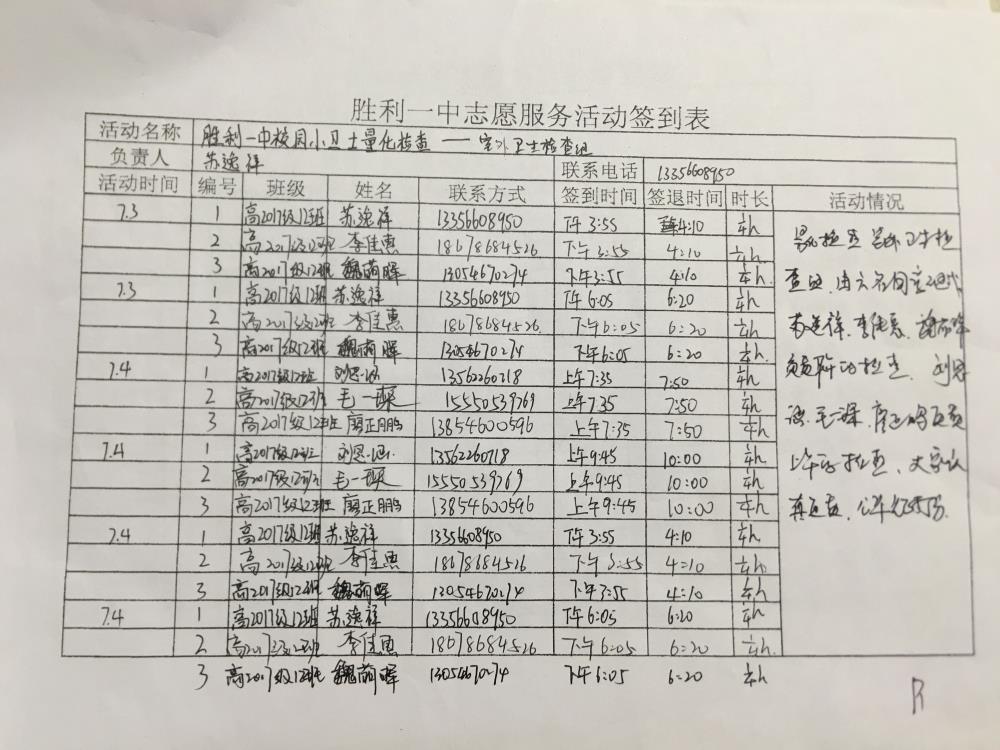 胜利一中志愿服务活动签到表
活动名称 胜利一中校园小卫士量化检查——室外卫生检查组
负责人 苏逸祥 联系电话 13356608950
活动时间 编号 班级 姓名 联系方式 签到时间 签退时间 时长 活动情况
7.3 1 高2017级12班 苏逸祥 13356608950 下午3:55 4:10 ¼h
2 高2017级12班 李佳惠 18678684526 下午3:55 4:10 ¼h
3 高2017级12班 魏萌晖 13054670274 下午3:55 4:10 ¼h
7.3 1 高2017级12班 苏逸祥 13356608950 下午6:05 6:20 ¼h
2 高2017级12班 李佳惠 18678684526 下午6:05 6:20 ¼h
3 高2017级12班 魏萌晖 13054670274 下午6:05 6:20 ¼h
7.4 1 高2017级12班 刘恩 13562260718 上午7:35 7:50 ¼h
2 高2017级12班 毛一琛 15550539769 上午7:35 7:50 ¼h
3 高2017级12班 廖正鹏 13854600596 上午7:35 7:50 ¼h
7.4 1 高2017级12班 刘恩 13562260718 上午9:45 10:00 ¼h
2 高2017级12班 毛一琛 15550539769 上午9:45 10:00 ¼h
3 高2017级12班 廖正鹏 13854600596 上午9:45 10:00 ¼h
7.4 1 高2017级12班 苏逸祥 13356608950 下午3:55 4:10 ¼h
2 高2017级12班 李佳惠 18678684526 下午3:55 4:10 ¼h
3 高2017级12班 魏萌晖 13054670274 下午3:55 4:10 ¼h
7.4 1 高2017级12班 苏逸祥 13356608950 下午6:05 6:20 ¼h
2 高2017级12班 李佳惠 18678684526 下午6:05 6:20 ¼h
3 高2017级12班 魏萌晖 13054670274 下午6:05 6:20 ¼h
苏逸祥、李佳惠、魏萌晖
负责下午的检查、刘恩
毛一琛、廖正鹏负责
上午的检查、大家认
真负责、公平